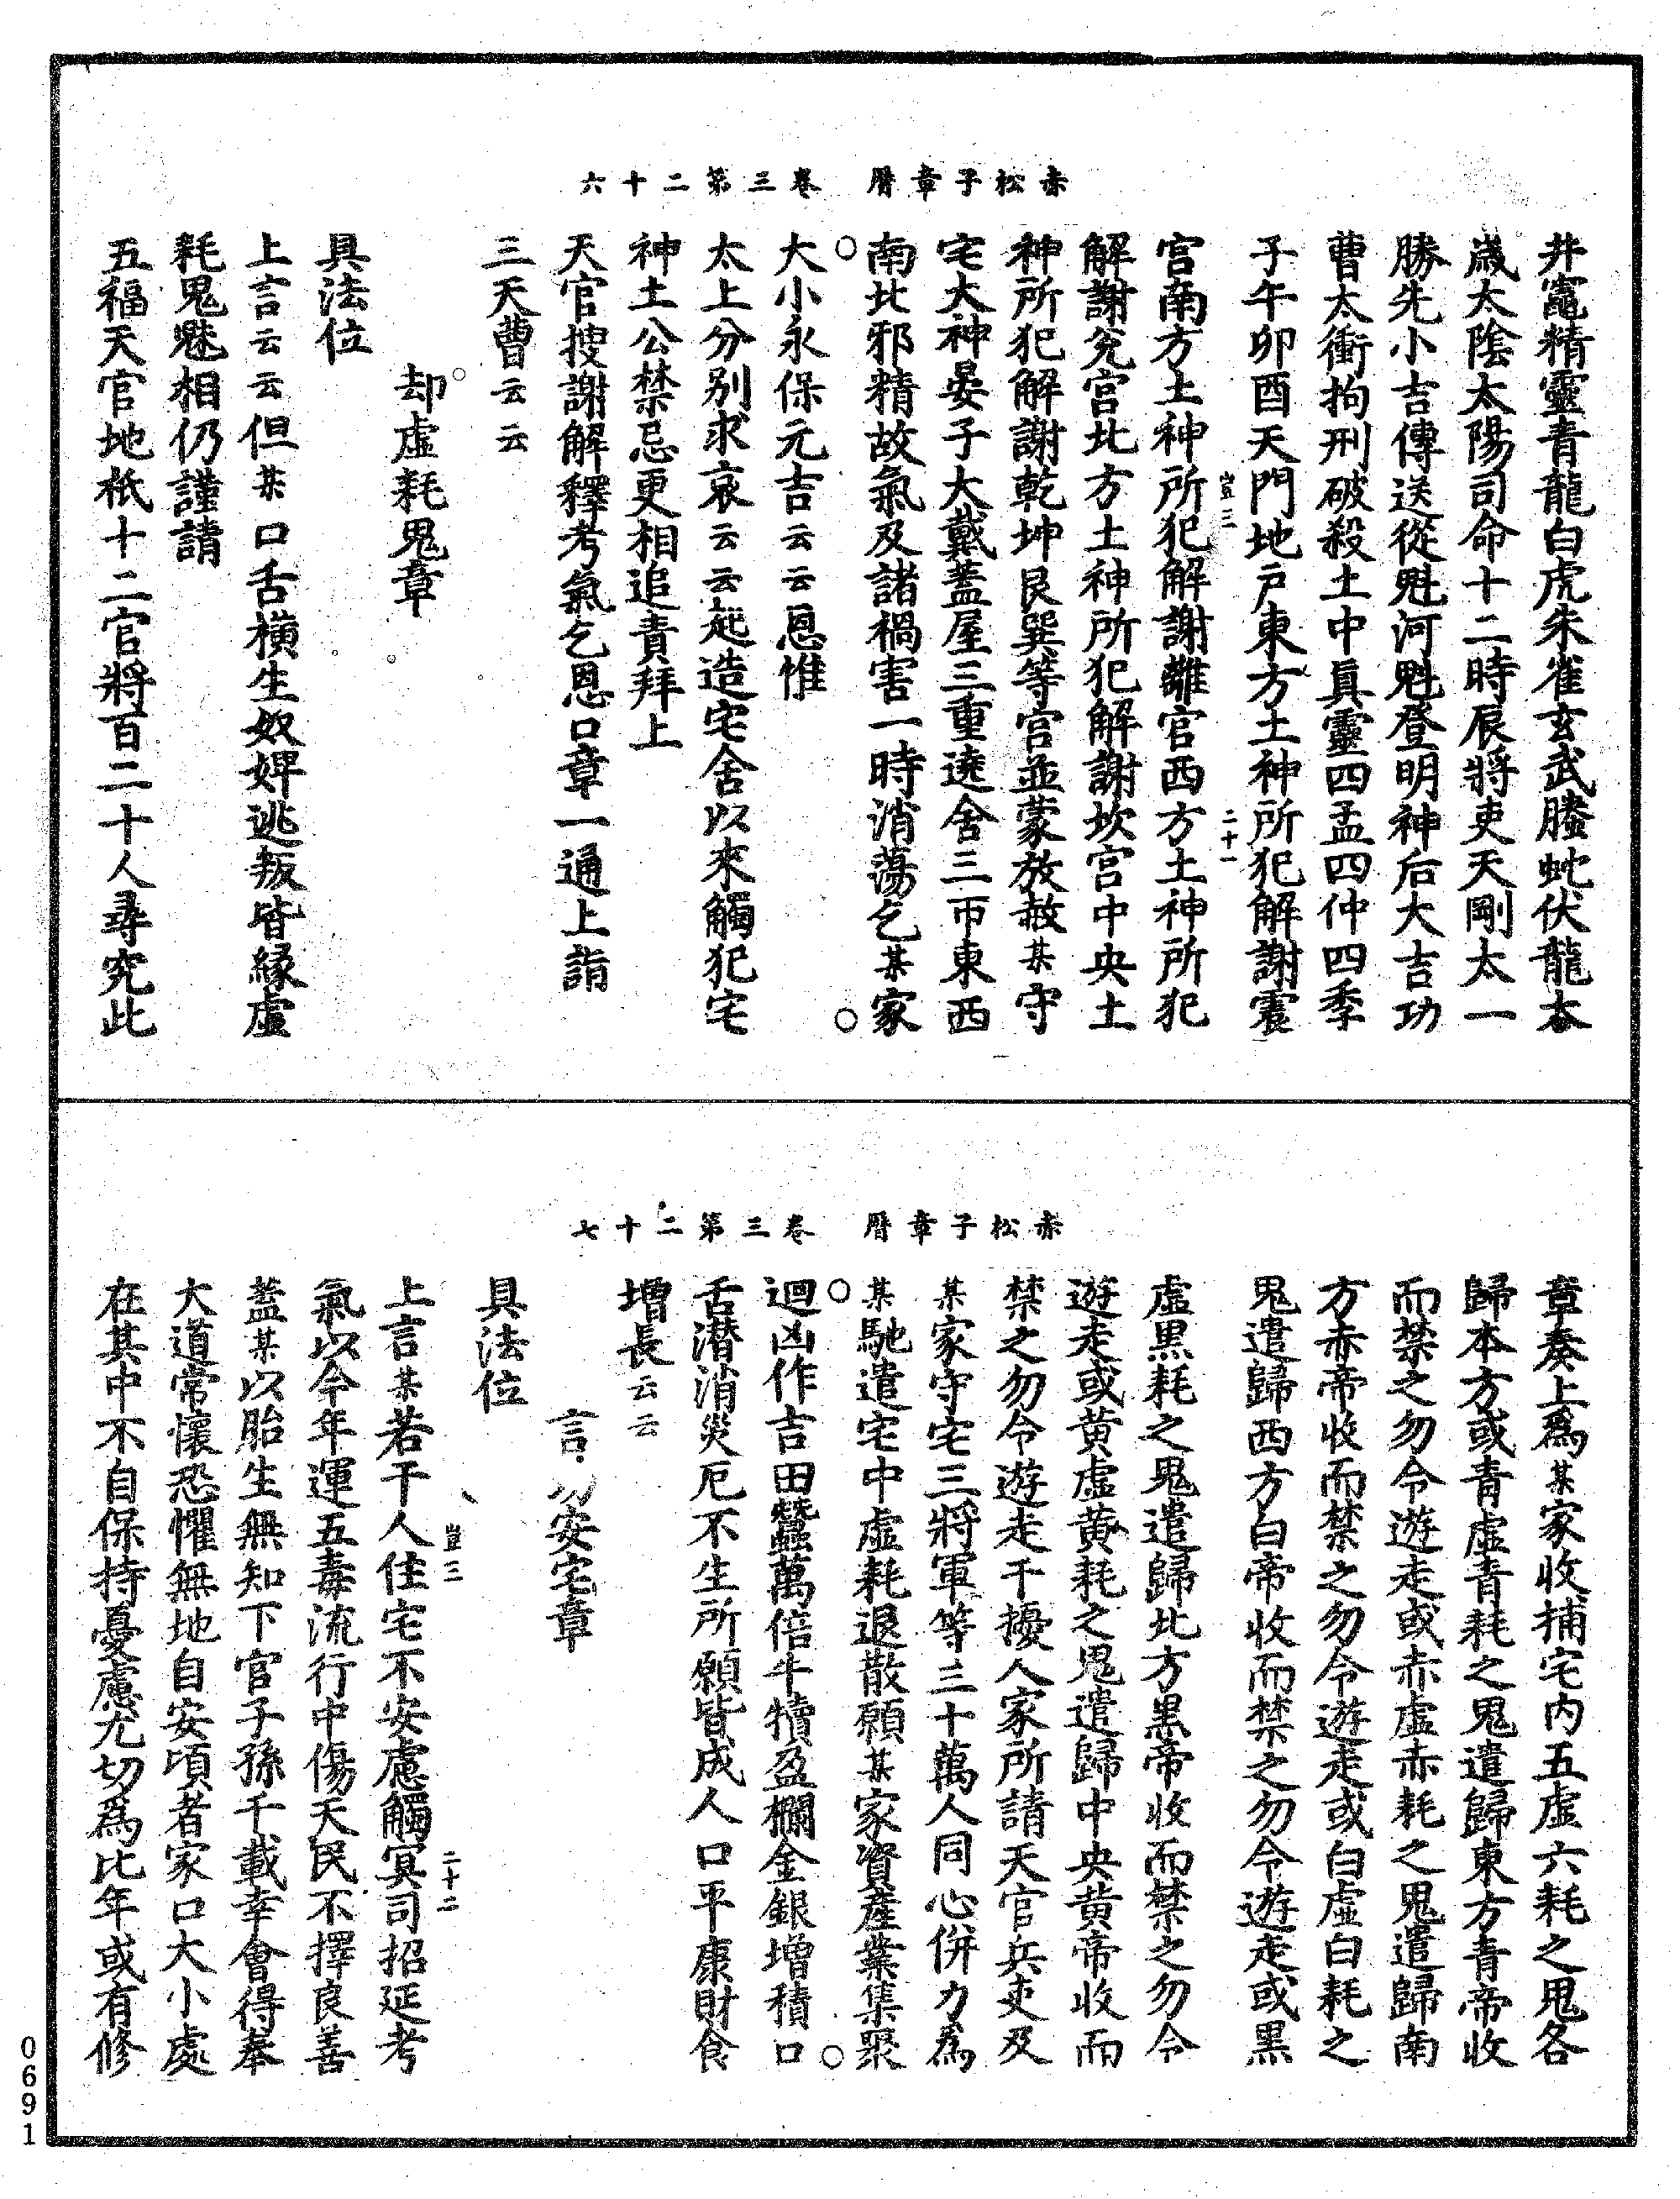 赤松子章曆　卷三第二十六
井竈精靈青龍白虎朱雀玄武螣蛇伏龍太
歲太陰太陽司命十二時辰將吏天剛太一
勝先小吉傳送從魁河魁登明神后大吉功
曹太衝拘刑破殺土中真靈四孟四仲四季
子午卯酉天門地戶東方土神所犯解謝震
豈三　二十一
宮南方土神所犯解謝離宮西方土神所犯
解謝兌宮北方土神所犯解謝坎宮中央土
神所犯解謝乾坤艮巽等宮並蒙放赦某守
宅大神晏子大戴蓋屋三重遶舍三帀東西
南北邪精故氣及諸禍害一時消蕩乞某家
大小永保元吉云云恩惟
太上分別求哀云云起造宅舍以來觸犯宅
神土公禁忌更相追責拜上
天官搜謝解釋考氣乞恩口章一通上詣
三天曹云云
却虛耗鬼章
具法位
上言云云但某口舌橫生奴婢逃叛皆緣虛
耗鬼魅相仍謹請
五福天官地祇十二官將百二十人尋究此
赤松子章曆　卷三第二十七
章奏上為某家收捕宅內五虛六耗之鬼各
歸本方或青虛青耗之鬼遣歸東方青帝收
而禁之勿令遊走或赤虛赤耗之鬼遣歸南
方赤帝收而禁之勿令遊走或白虛白耗之
鬼遣歸西方白帝收而禁之勿令遊走或黑
虛黑耗之鬼遣歸北方黑帝收而禁之勿令
遊走或黃虛黃耗之鬼遣歸中央黃帝收而
禁之勿令遊走干擾人家所請天官兵吏及
某家守宅三將軍等三十萬人同心併力為
某馳遣宅中虛耗退散願某家資產業集聚
迴凶作吉田蠶萬倍牛犢盈欄金銀增積口
舌潛消災厄不生所願皆成人口平康財食
增長云云
言功安宅章
具法位
豈三　二十二
上言某若干人住宅不安慮觸冥司招延考
氣以今年運五毒流行中傷天民不擇良善
蓋某以胎生無知下官子孫千載幸會得奉
大道常懷恐懼無地自安頃者家口大小處
在其中不自保持憂慮尤切為比年或有修
0691